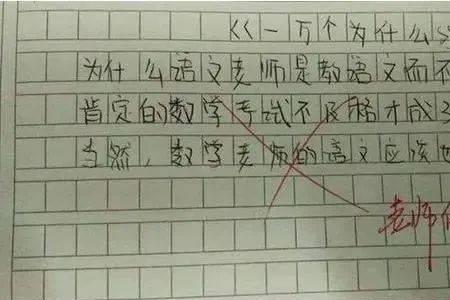 《一万个为什么
为什么语文老师是教语文而不
肯定的数学考试不及格才成
当然，数学老师的语文应该也
老师